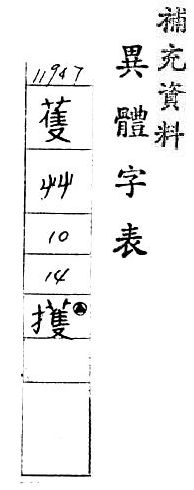 補充資料
異體字表
11947
蒦
艸
10
14
擭